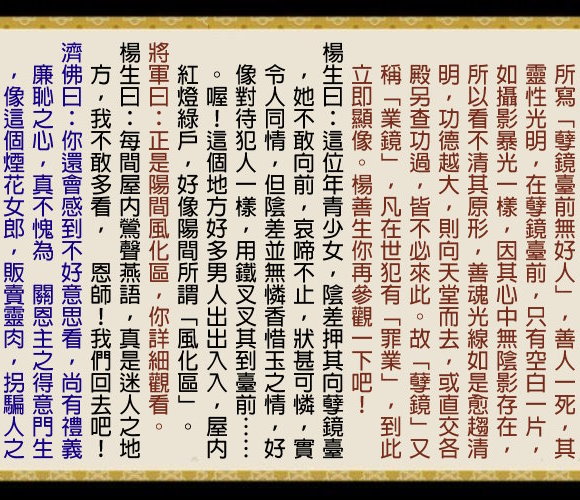 所寫「孽鏡臺前無好人」，善人一死，其
靈性光明，在孽鏡臺前，只有空白一片，
如攝影暴光一樣，因其心中無陰影存在，
所以看不清其原形，善魂光線如是愈趨清
明，功德越大，則向天堂而去，或直交各
殿另查功過，皆不必來此。故「孽鏡」又
稱「業鏡」，凡在世犯有「罪業」，到此
立即顯像。楊善生你再參觀一下吧！
楊生曰：這位年青少女，陰差押其向孽鏡臺
，她不敢向前，哀啼不止，狀甚可憐，實
令人同情，但陰差並無憐香惜玉之情，好
像對待犯人一樣，用鐵叉叉其到臺前……
。喔！這個地方好多男人出出入入，屋內
紅燈綠戶，好像陽間所謂「風化區」。
將軍曰：正是陽間風化區，你詳細觀看。
楊生曰：每間屋內鶯聲燕語，真是迷人之地
方，我不敢多看，　恩師！我們回去吧！
濟佛曰：你還會感到不好意思看，尚有禮義
廉恥之心，真不愧為　關恩主之得意門生
，像這個煙花女郎，販賣靈肉，拐騙人之